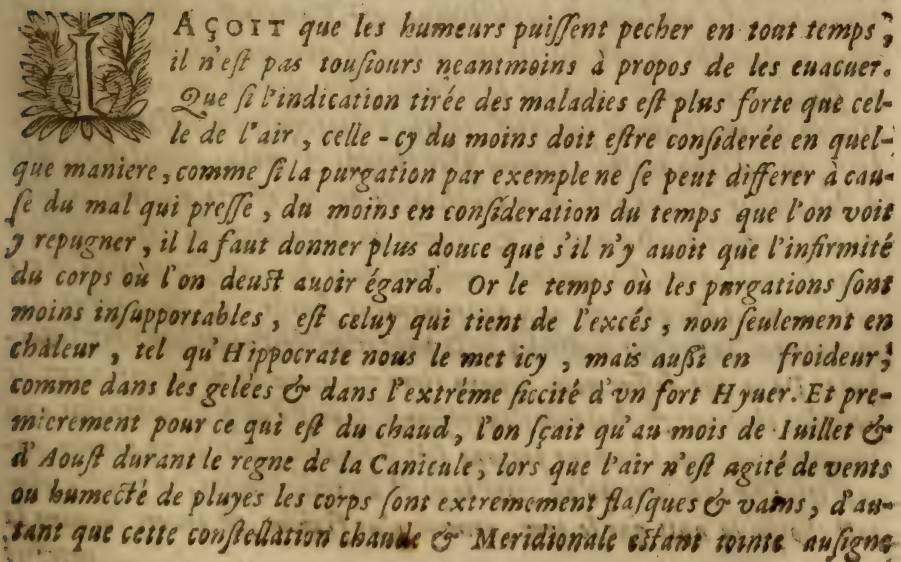 IAÇOIT que les humeurs puiſſent pecher en tout temps,
il n'eſt pas touſiours neantmoins à propos de les euacuer.
Que ſi l'indication tirée des maladies eſt plus forte que cel-
le de l'air, celle-cy du moins doit eſtre conſiderée en quel-
que maniere, comme ſi la purgation par exemple ne ſe peut differer à cau-
ſe du mal qui preſſe, du moins en conſideration du temps que l'on voit
y repugner, il la faut donner plus douce que s'il n'y auoit que l'infirmité
du corps où l'on deuſt auoir égard. Or le temps où les purgations ſont
moins inſupportables, eſt celuy qui tient de l'excés, non ſeulement en
chaleur, tel qu'Hippocrate nous le met icy, mais auſſi en froideur;
comme dans les gelées & dans l'extréme ſiccité d'vn fort Hyuer. Et pre-
mierement pour ce qui eſt du chaud, l'on ſçait qu'au mois de Iuillet &
d'Aouſt durant le regne de la Canicule, lors que l'air n'eſt agité de vents
ou humecté de pluyes les corps ſont extremement flaſques & vains, d'au-
tant que cette conſtellation chaude & Meridionale eſtant iointe au ſigne